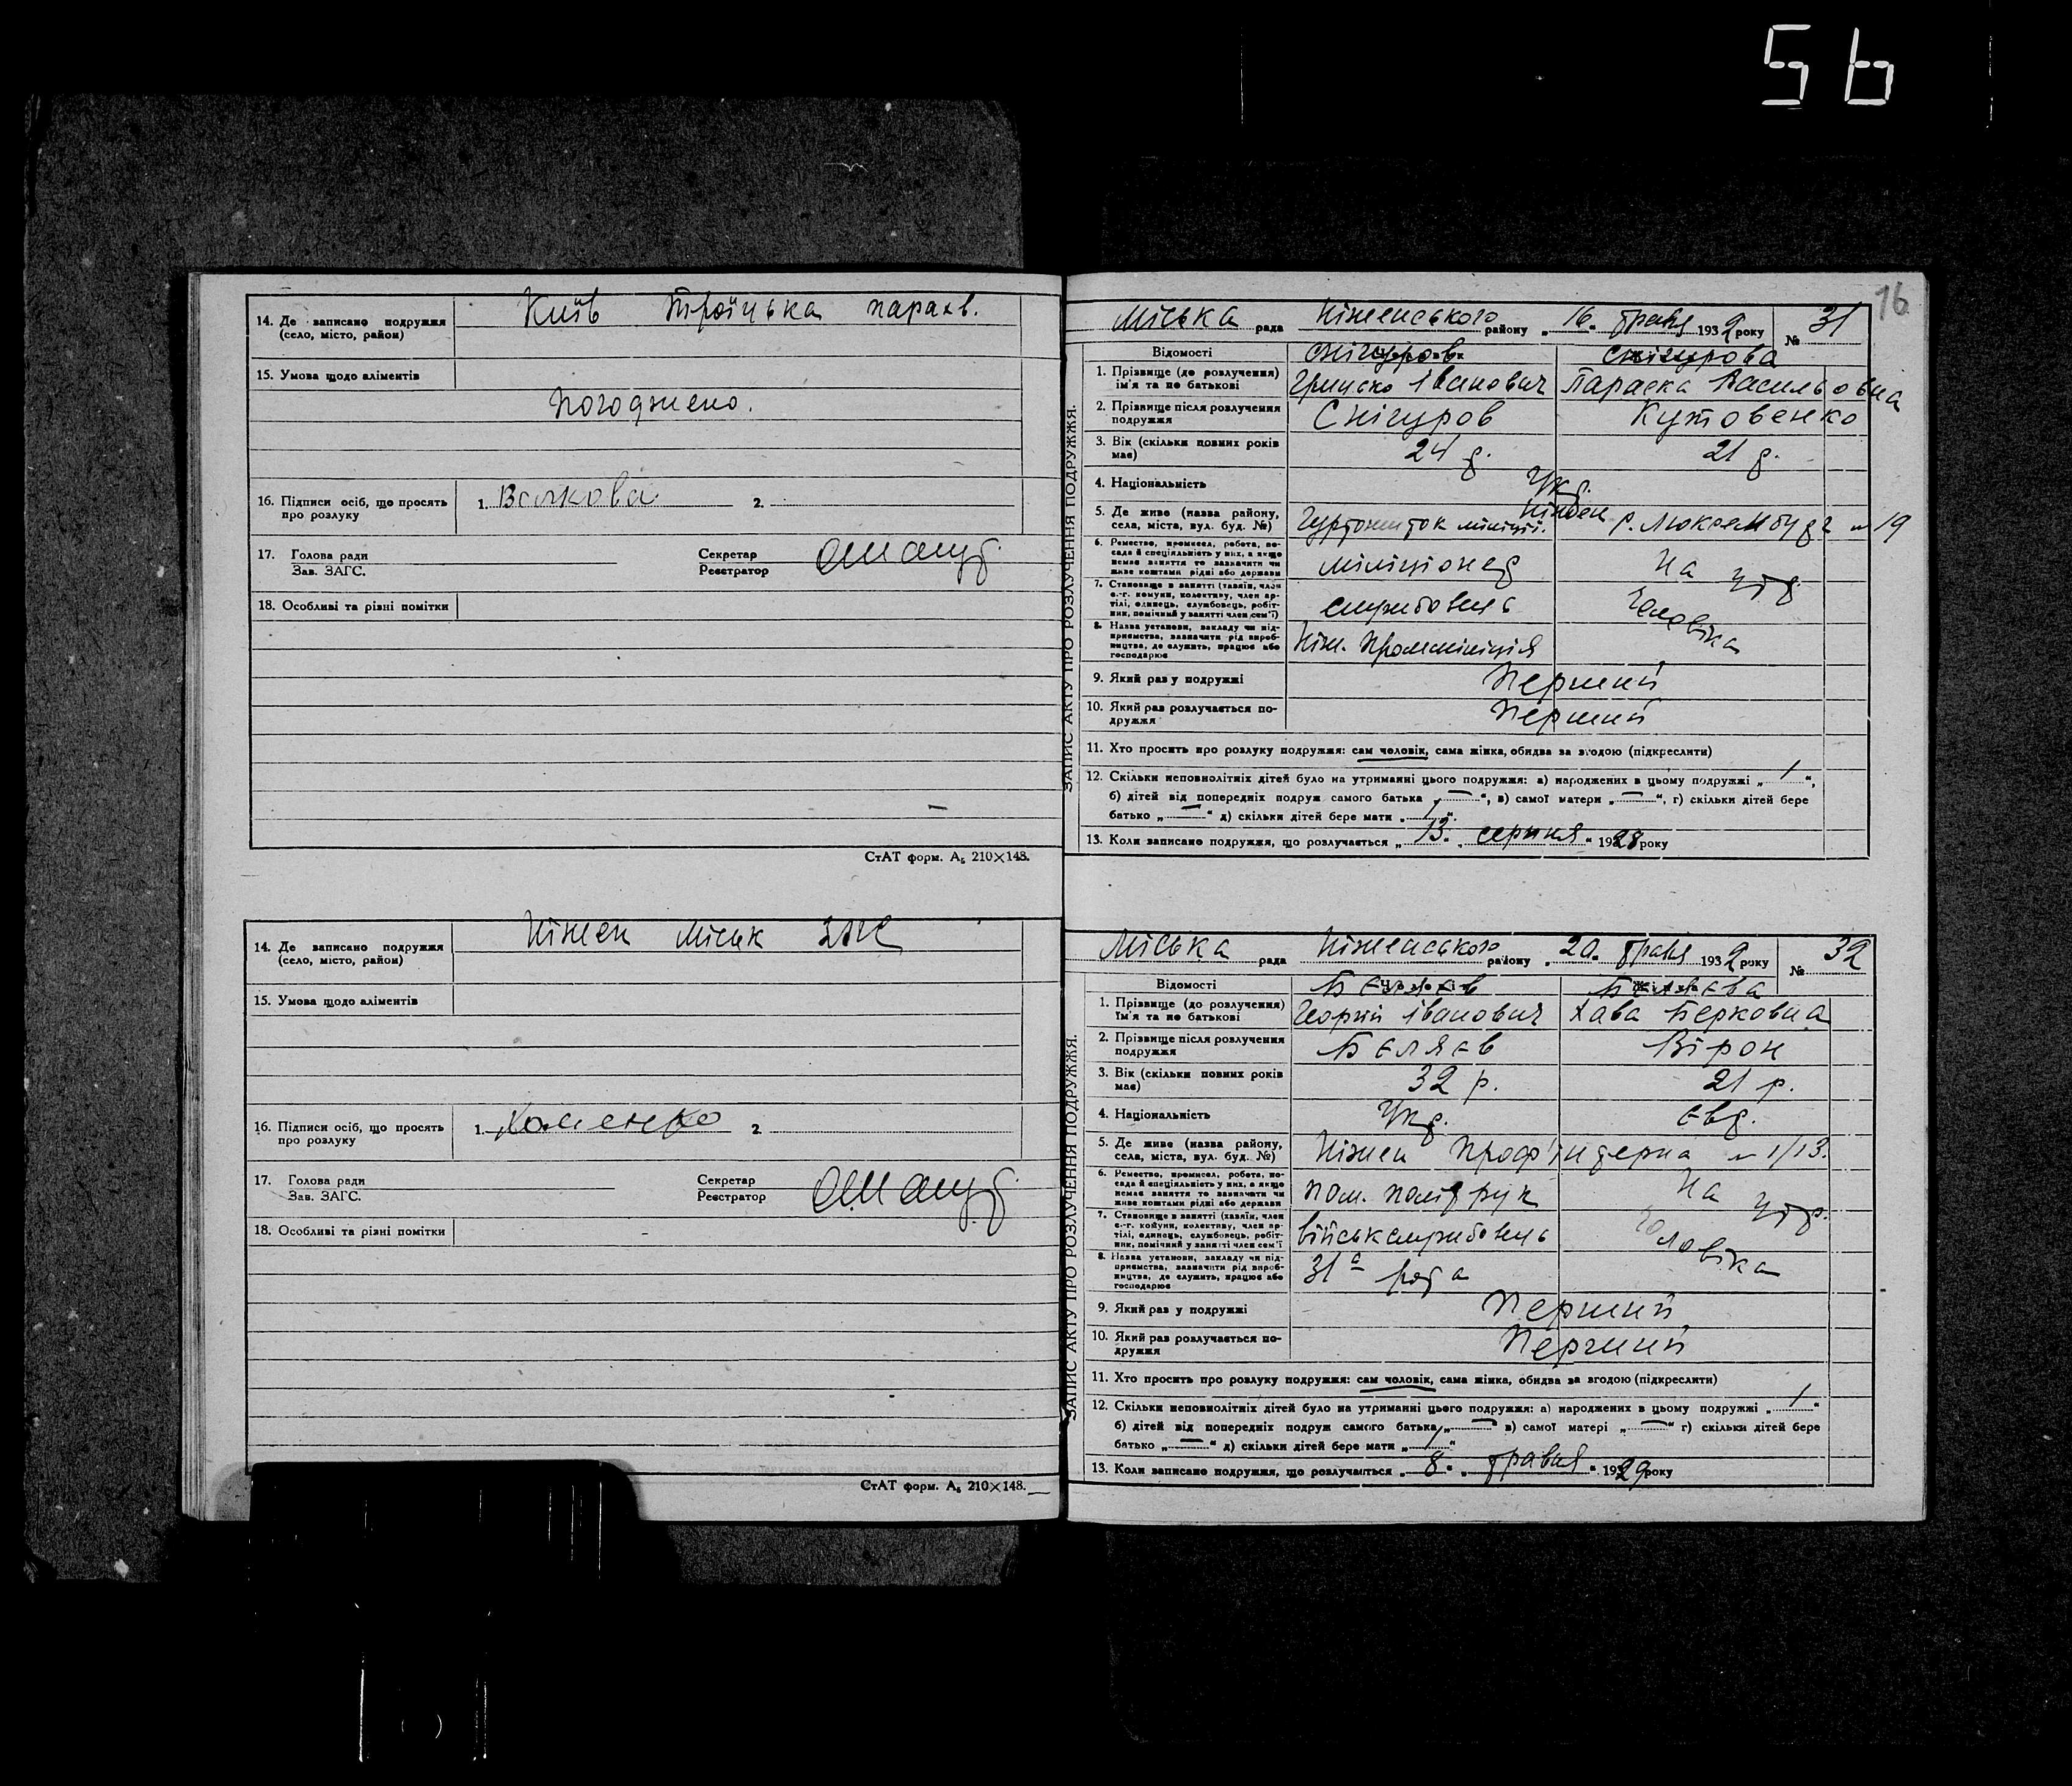 56
14. Де записано подружжя Київ Троїцька парахв.
(село, місто, район)
15. Умова щодо аліментів
Погоджено.
16. Підписи осіб, що просять 1. Волкова 2.
про розлуку
17. Голова ради Секретар
Зав. ЗАГС. Реєстратор
18. Особливі та різні помітки
СтАТ форм. А₅ 210×148.
14. Де записано подружжя Ніжен міськ ЗАГС
(село, місто, район)
15. Умова щодо аліментів
16. Підписи осіб, що просять 1. 2.
про розлуку
17. Голова ради Секретар
Зав. ЗАГС. Реєстратор
18. Особливі та різні помітки
СтАТ форм. А₅ 210×148.
16
ЗАПИС АКТУ ПРО РОЗЛУЧЕННЯ ПОДРУЖЖЯ.
Міська рада Ніженського району „16" травня 1932 року № 31
Відомості Снігуров Снігурова
1. Прізвище (до розлучення) Грицько Іванович Параска Васильовна
ім'я та по батькові
2. Прізвище після розлучення Снігуров Кутовенко
подружжя
3. Вік (скільки повних років 24 р. 21 р.
має)
4. Національність Укр.
5. Де живе (назва району, Гуртожиток міліції. Ніжен Р. Люксембург № 19
села, міста, вул. буд. №)
6. Ремество, промисел, робота, по-
сада й спеціяльність у них, а якщо міліціонер На утр
немає заняття то зазначити чи
живе коштами рідні або держави
7. Становище в занятті (хазяїн, член
с.-г. комуни, колективу, член ар- службовець Чоловіка
тілі, одинець, службовець, робіт-
ник, помічний у занятті член сем'ї)
8. Назва установи, закладу чи під-
приємства, зазначити рід вироб- Ніж. Проммініція
ництва, де служить, працює або
господарює
9. Який раз у подружжі Перший
10. Який раз розлучається по- Перший
дружжя
11. Хто просить про розлуку подружжя: сам чоловік, сама жінка, обидва за згодою (підкреслити)
12. Скільки неповнолітніх дітей було на утриманні цього подружжя: а) народжених в цьому подружжі „1",
б) дітей від попередніх подруж самого батька „—", в) самої матери „—", г) скільки дітей бере
батько „—" д) скільки дітей бере мати „1".
13. Коли записано подружжя, що розлучається „13" „серпня" 1928 року
ЗАПИС АКТУ ПРО РОЗЛУЧЕННЯ ПОДРУЖЖЯ.
Міська рада Ніженського району „20" травня 1932 року № 32
Відомості Бєляєв Бєляєва
1. Прізвище (до розлучення) Георгій Іванович Хава Берковна
ім'я та по батькові
2. Прізвище після розлучення Бєляєв Вірон
подружжя
3. Вік (скільки повних років 32 р. 21 р.
має)
4. Національність Укр. Євр.
5. Де живе (назва району, Ніжен Профінтерна № 1/13.
села, міста, вул. буд. №)
6. Ремество, промисел, робота, по-
сада й спеціяльність у них, а якщо пом. політрук На утр.
немає заняття то зазначити чи
живе коштами рідні або держави
7. Становище в занятті (хазяїн, член
с.-г. комуни, колективу, член ар- військслужбовець Чоловіка
тілі, одинець, службовець, робіт-
ник, помічний у занятті член сем'ї
8. Назва установи, закладу чи під-
приємства, зазначити рід вироб- 31а рота
ництва, де служить, працює або
господарює
9. Який раз у подружжі Перший
10. Який раз розлучається по- Перший
дружжя
11. Хто просить про розлуку подружжя: сам чоловік, сама жінка, обидва за згодою (підкреслити)
12. Скільки неповнолітніх дітей було на утриманні цього подружжя: а) народжених в цьому подружжі „1"
б) дітей від попередніх подруж самого батька „—" в) самої матері „—" г) скільки дітей бере
батько „—" д) скільки дітей бере мати „1"
13. Коли записано подружжя, що розлучається „8" „травня" 1929 року